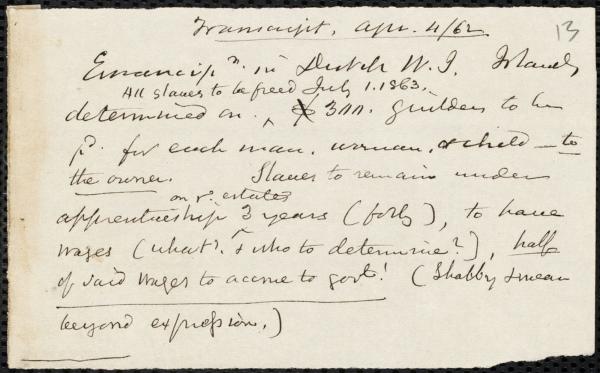 Transcript, Apr. 4/62
13
Emancipn. in Dutch W. I. Islands
All slaves to be freed July 1. 1863.
determined on. ^ 300. guilders to be
pd. for each man, woman, & child — to
the owner. Slaves to remain under
on ye. estates
apprenticeship 3 years (forby), to have
wages (what? & who to determine?), half
of said wages to accrue to govt! (Shabby & mean
beyond expression.)